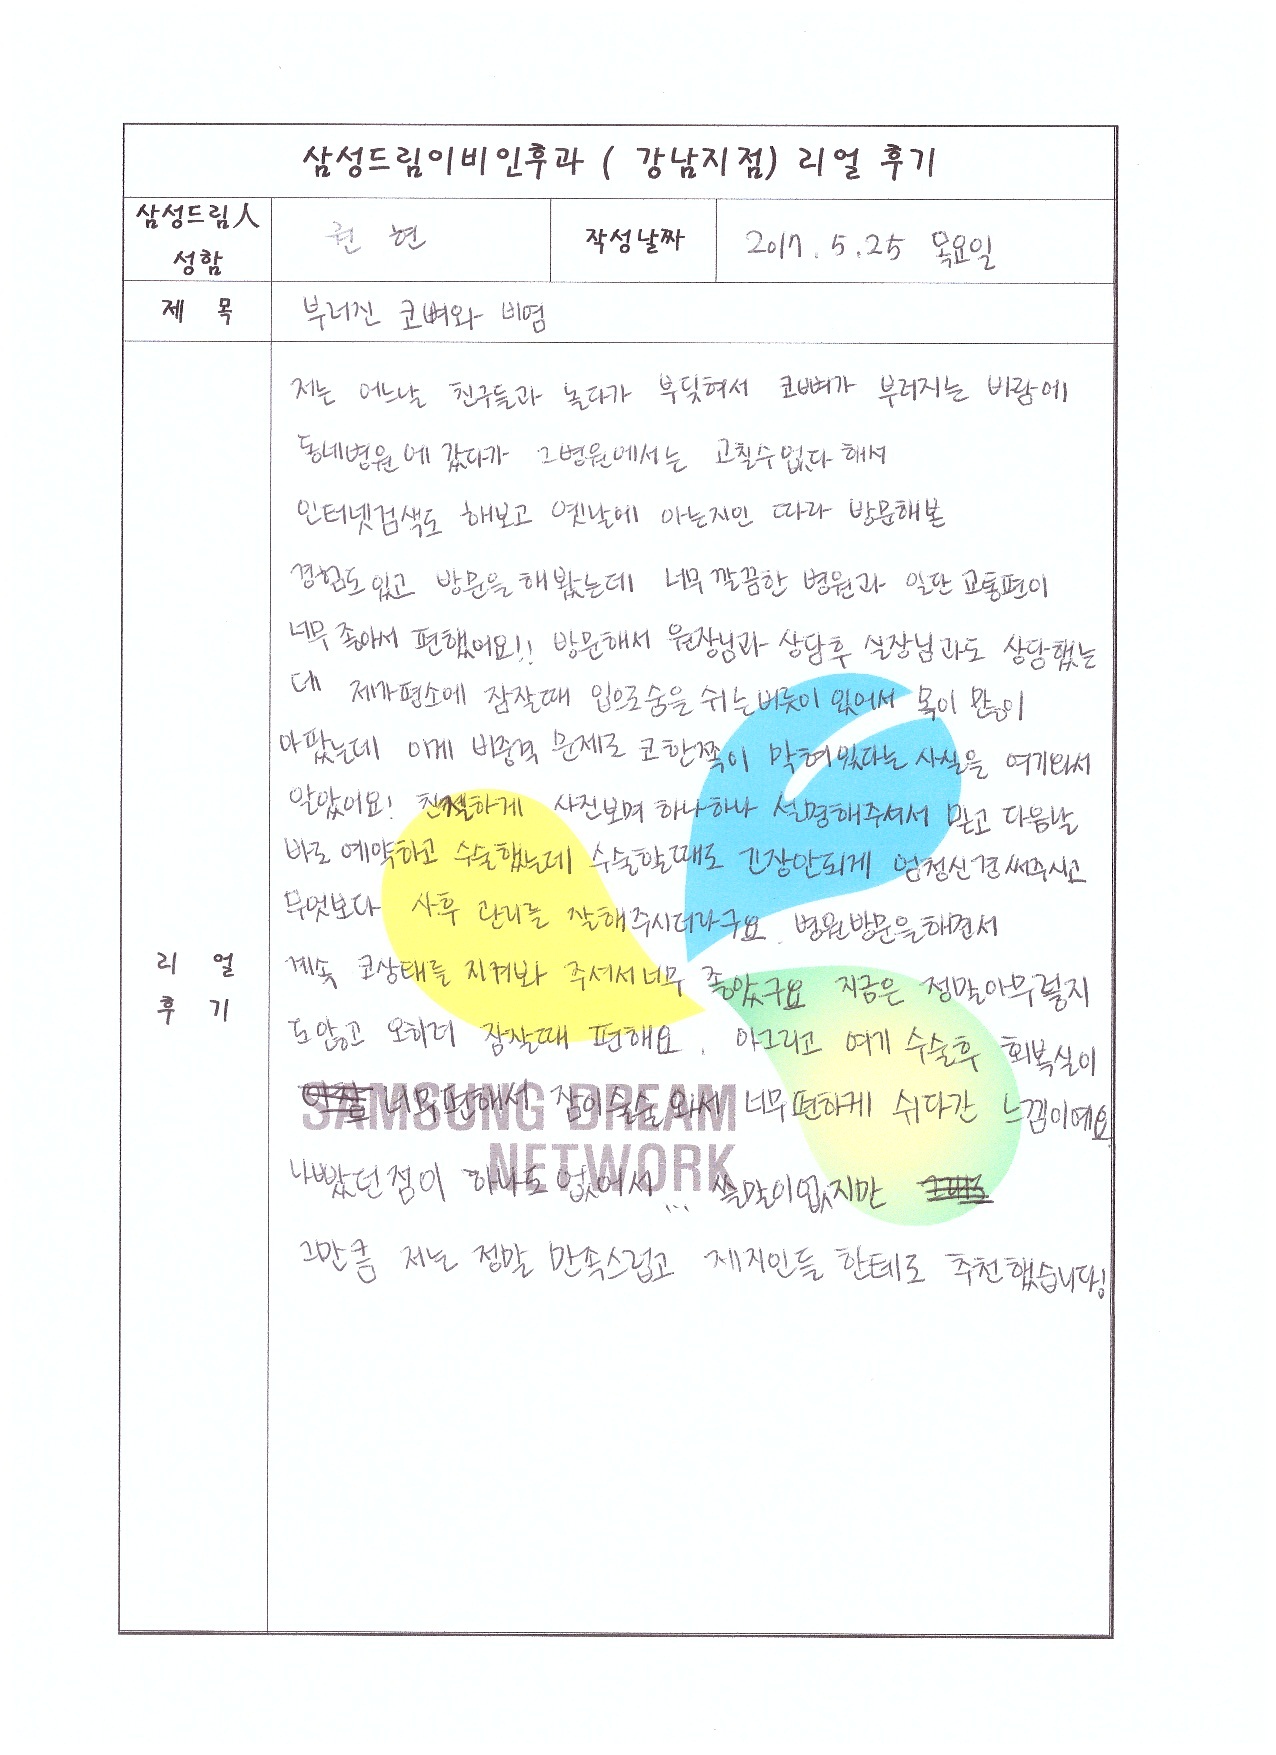 삼성드림이비인후과 ( 강남지점) 리얼 후기
삼성드림人 성함
권 현
작성날짜
2017. 5. 25 목요일
제 목
부러진 코뼈와 비염
리 얼 후 기
저는 어느날 친구들과 놀다가 부딪혀서 코뼈가 부러지는 바람에
동네병원에 갔다가 그병원에서는 고칠수없다 해서
인터넷검색도 해보고 옛날에 아는지인 따라 방문해본
경험도있고 방문을 해봤는데 너무 깔끔한 병원과 일단 교통편이
너무 좋아서 편했어요!! 방문해서 원장님과 상담후 실장님과도 상담했는
데 제가평소에 잠잘때 입으로숨을 쉬는버릇이 있어서 목이 많이
아팠는데 이게 비중격 문제로 코한쪽이 막혀있다는 사실을 여기와서
알았어요! 친절하게 사진보며 하나하나 설명해주셔서 믿고 다음날
바로 예약하고 수술했는데 수술할때도 긴장안되게 엄청신경써주시고
무엇보다 사후 관리를 잘해주시더라구요. 병원방문을해면서
계속 코상태를 지켜봐 주셔서너무 좋았구요 지금은 정말아무렇지
도않고 오히려 잠잘때 편해요. 아그리고 여기 수술후 회복실이
너무편해서 잠이솔솔 와서 너무편하게 쉬다간 느낌이에요
나빴던점이 하나도 없어서... 쓸말이없지만
그만큼 저는 정말 만족스럽고 제지인들 한테도 추천했습니다!
SAMSUNG DREAM
NETWORK